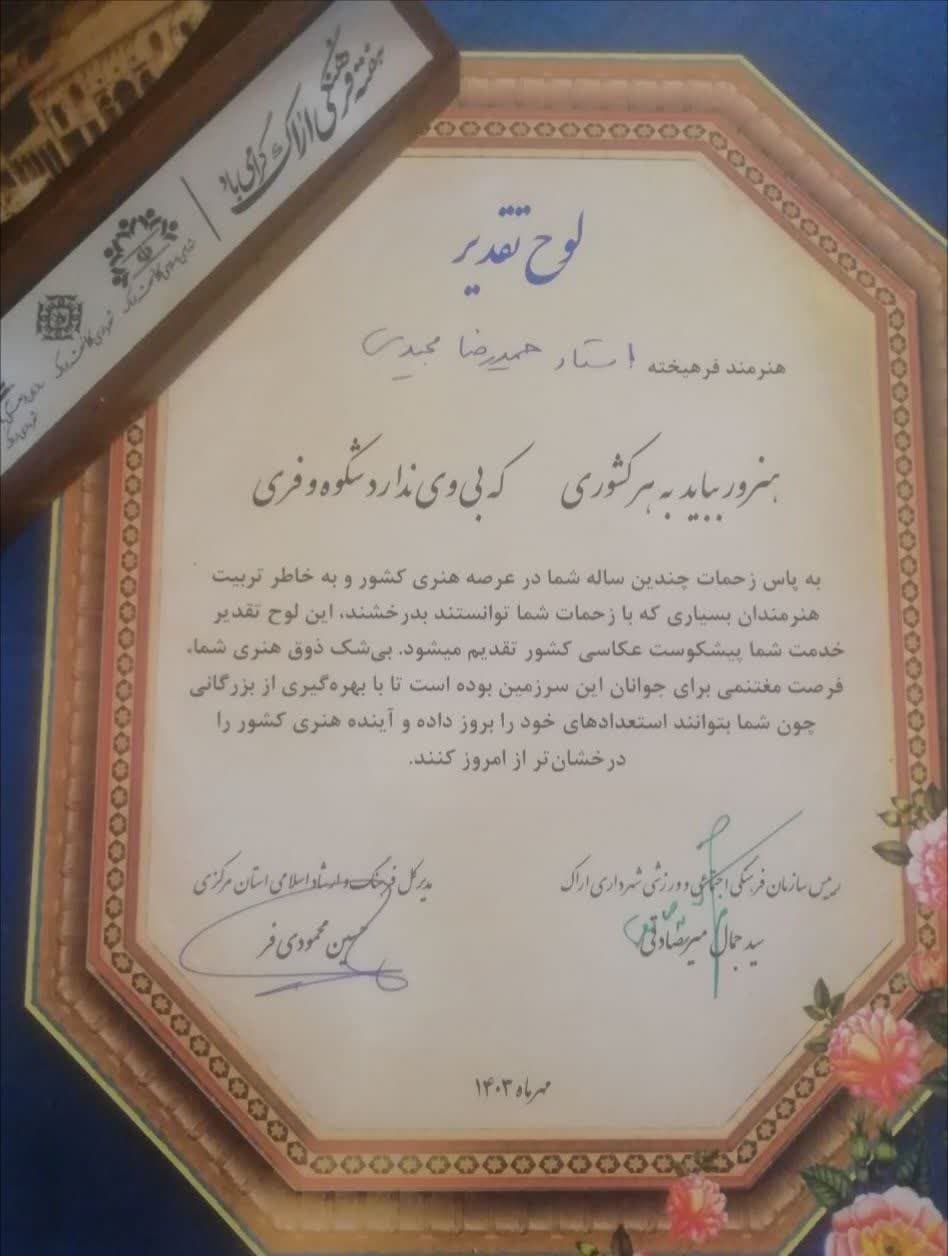 هفته فرهنگی اراک گرامی باد
لوح تقدیر
هنرمند فرهیخته استاد حمیدرضا مجیدی
هنرور بباید به هر کشوری که بی وی ندارد شکوه و فری
به پاس زحمات چندین ساله شما در عرصه هنری کشور و به خاطر تربیت
هنرمندان بسیاری که با زحمات شما توانستند بدرخشند، این لوح تقدیر
خدمت شما پیشکوست عکاسی کشور تقدیم میشود. بی‌شک ذوق هنری شما،
فرصت مغتنمی برای جوانان این سرزمین بوده است تا با بهره‌گیری از بزرگانی
چون شما بتوانند استعدادهای خود را بروز داده و آینده هنری کشور را
درخشان‌تر از امروز کنند.
رییس سازمان فرهنگی اجتماعی و ورزشی شهرداری اراک
سید جمال میرصادقی
مدیر کل فرهنگ و ارشاد اسلامی استان مرکزی
حسین محمودی فر
مهر ماه ۱۴۰۳